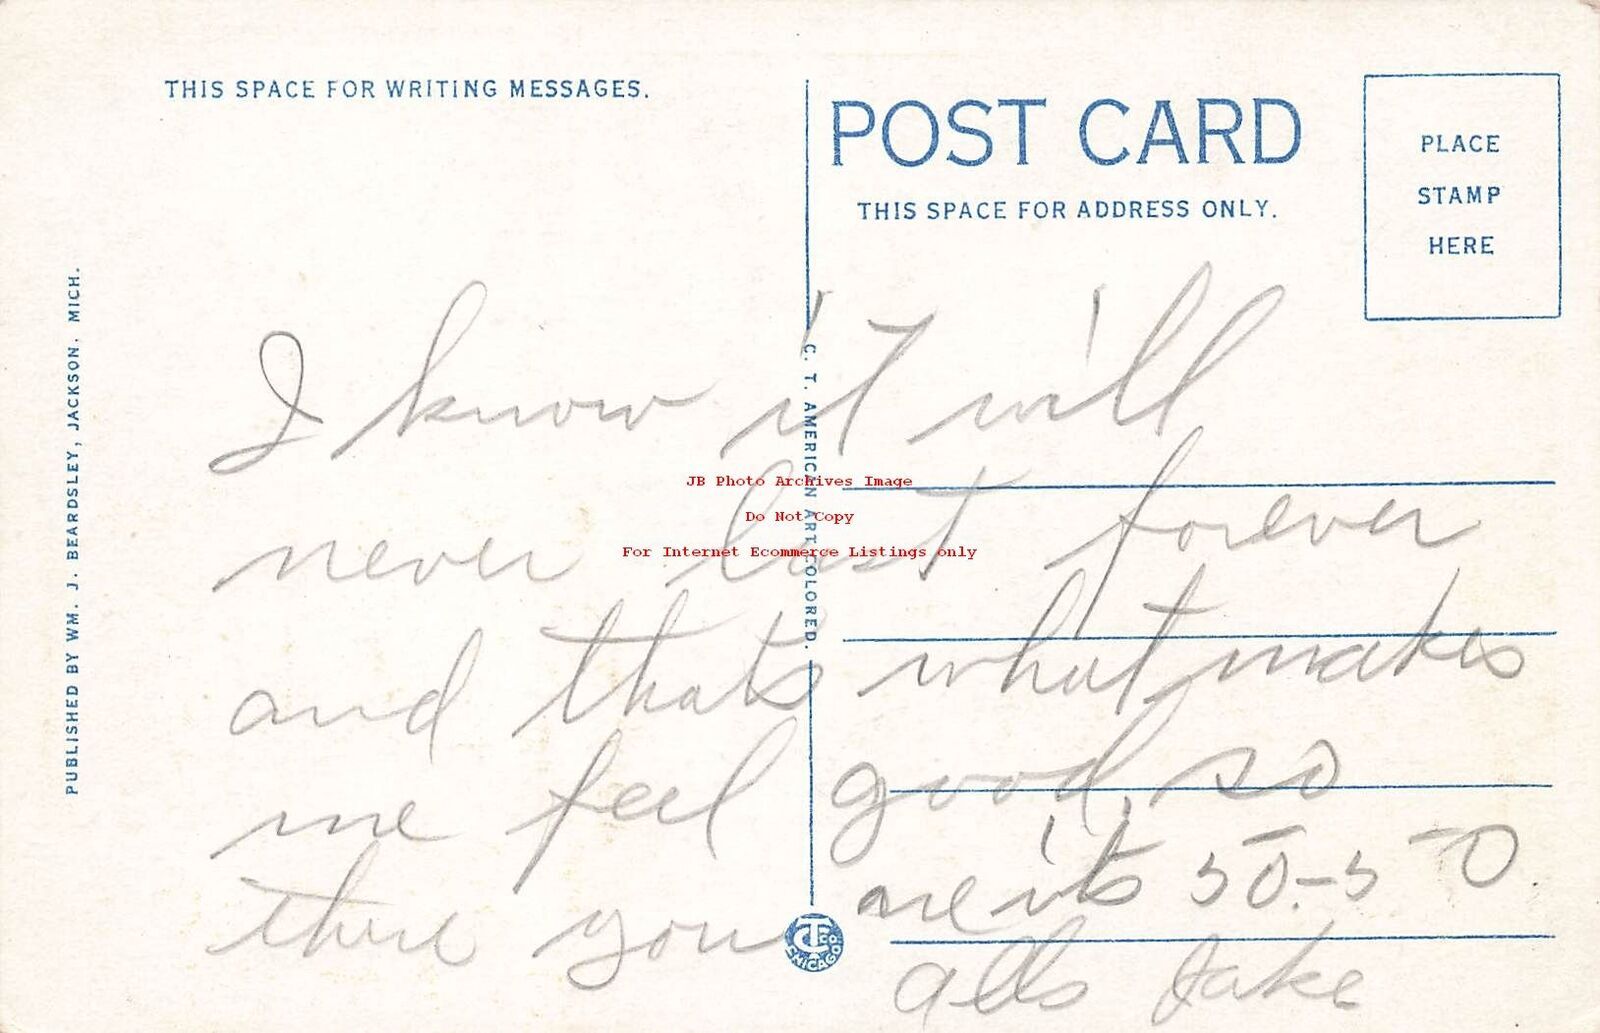 THIS SPACE FOR WRITING MESSAGES.
POST CARD
THIS SPACE FOR ADDRESS ONLY.
PLACE
STAMP
HERE
PUBLISHED BY WM. J. BEARDSLEY, JACKSON, MICH.
C. T. AMERICAN ART COLORED.
I know it will
never last forever
and thats what makes
me feel good, so
there you are its 50-50.
alls Jake
JB Photo Archives Image
Do Not Copy
For Internet Ecommerce Listings only
CHICAGO